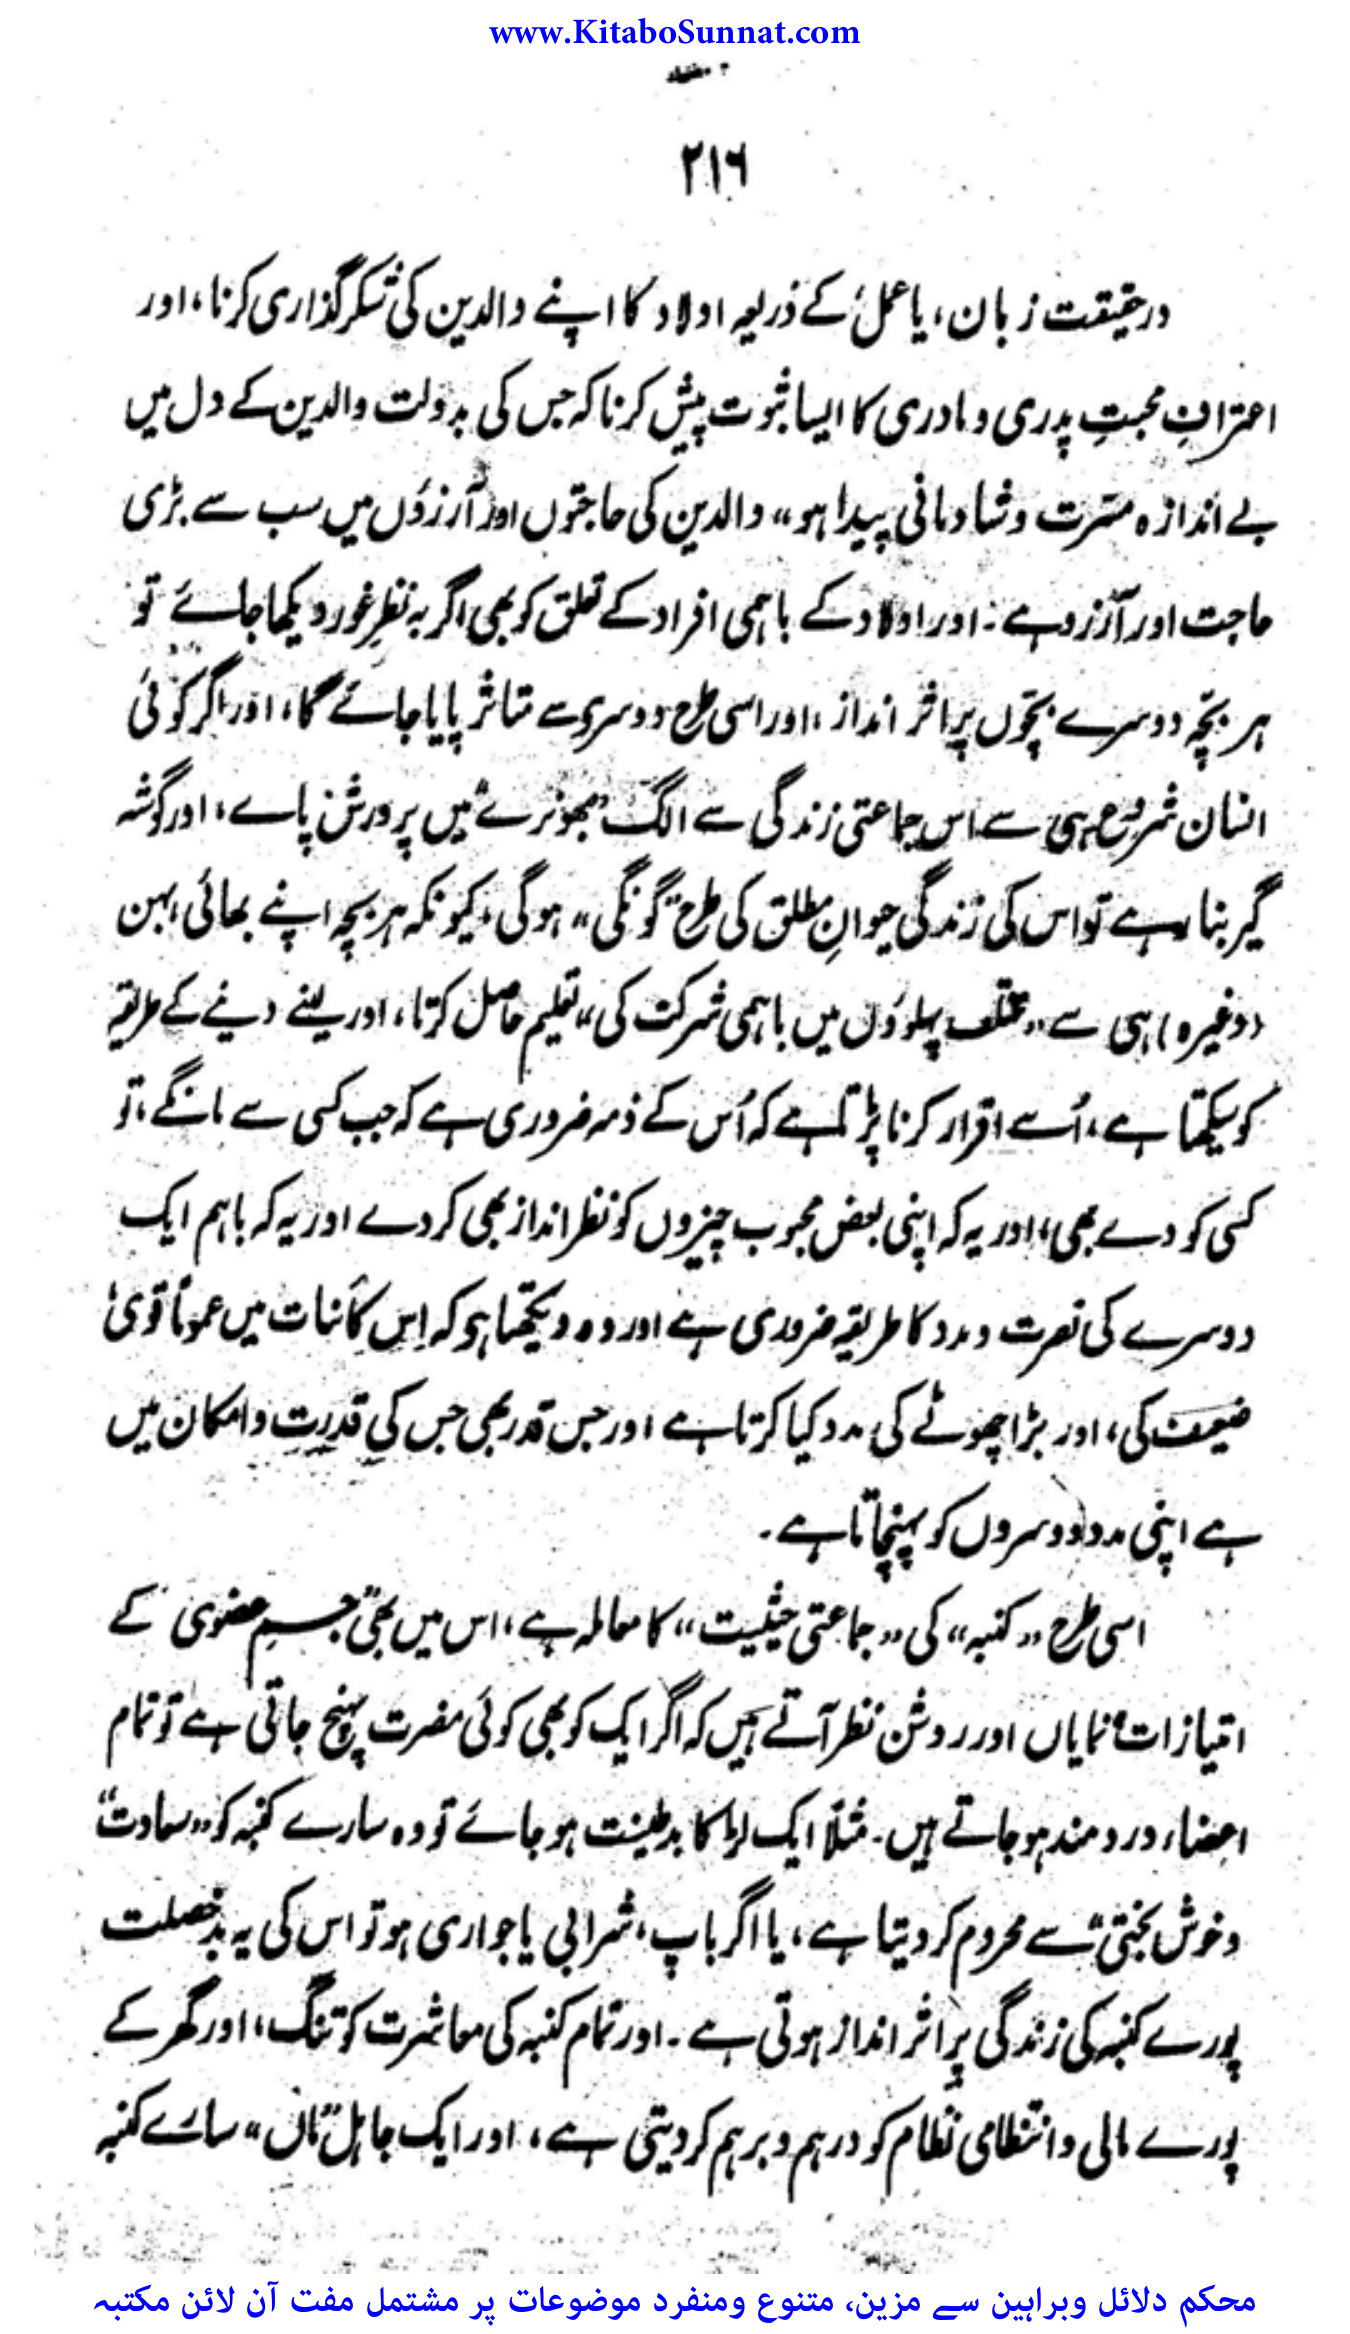 www.KitaboSunnat.com
۲۱۶
درحقیقت زبان، یا عمل کے ذریعہ اولاد کا اپنے والدین کی شکرگذاری کرنا، اور
اعترافِ محبتِ پدری و مادری کا ایسا ثبوت پیش کرنا کہ جس کی بدولت والدین کے دل میں
بے اندازہ مسرت و شادمانی پیدا ہو،، والدین کی حاجتوں اور آرزؤں میں سب سے بڑی
حاجت اور آرزو ہے۔ اور اولاد کے باہمی افراد کے تعلق کو بھی اگر بہ نظرِ غور دیکھا جائے تو
ہر بچّہ دوسرے بچّوں پر اثر انداز، اور اسی طرح دوسرے سے متاثر پایا جائے گا، اور اگر کوئی
انسان شروع ہی سے اس جماعتی زندگی سے الگ "بھونرے" میں پرورش پائے، اور گوشہ
گیر بنا رہے تو اس کی زندگی حیوانِ مطلق کی طرح "گونگی" ہوگی، کیونکہ ہر بچہ اپنے بھائی، بہن
(وغیرہ) ہی سے "مختلف پہلوؤں میں باہمی شرکت کی" تعلیم حاصل کرتا، اور لینے دینے کے طریقہ
کو سیکھتا ہے، اُسے اقرار کرنا پڑتا ہے کہ اُس کے ذمہ ضروری ہے کہ جب کسی سے مانگے، تو
کسی کو دے بھی، اور یہ کہ اپنی بعض محبوب چیزوں کو نظر انداز بھی کردے اور یہ کہ باہم ایک
دوسرے کی نصرت و مدد کا طریقہ ضروری ہے اور وہ دیکھتا ہو کہ اِس کائنات میں عموماً قویٰ
ضیعف کی، اور بڑا چھوٹے کی مدد کیا کرتا ہے اور جس قدر بھی جس کی قدرت و امکان میں
ہے اپنی مدد دوسروں کو پہنچاتا ہے۔
اسی طرح "کنبہ" کی "جماعتی حیثیت" کا معاملہ ہے، اس میں بھی "جسمِ عضوی" کے
امتیازات نمایاں اور روشن نظر آتے ہیں کہ اگر ایک کو بھی کوئی مضرت پہنچ جاتی ہے تو تمام
اعضاء دردمند ہو جاتے ہیں۔ مثلاً ایک لڑکا بدطینت ہو جائے تو وہ سارے کنبہ کو "سعادت
و خوش بختی" سے محروم کر دیتا ہے، یا اگر باپ، شرابی یا جواری ہو تو اس کی یہ بدخصلت
پورے کنبہ کی زندگی پر اثر انداز ہوتی ہے۔ اور تمام کنبہ کی معاشرت کو تنگ، اور گھر کے
پورے مالی و انتظامی نظام کو درہم و برہم کر دیتی ہے، اور ایک جاہل "ماں" سارے کنبہ
محکم دلائل وبراہین سے مزین، متنوع ومنفرد موضوعات پر مشتمل مفت آن لائن مکتبہ